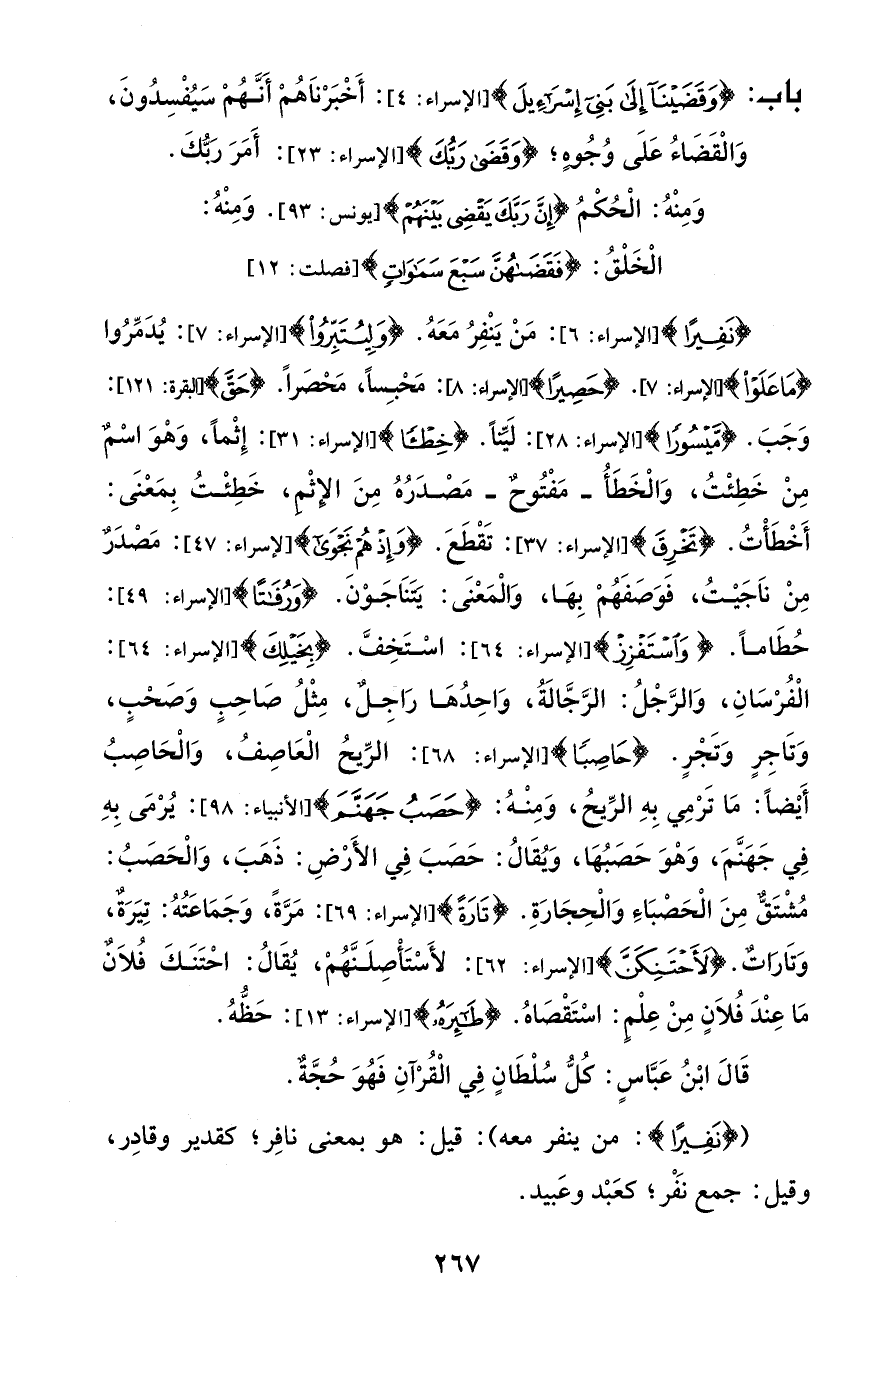 باب: ﴿وَقَضَيْنَآ إِلَىٰ بَنِىٓ إِسْرَٰٓءِيلَ﴾[الإسراء: ٤]: أَخْبَرْنَاهُمْ أَنَّهُمْ سَيُفْسِدُونَ،
وَالْقَضَاءُ عَلَى وُجُوهٍ؛ ﴿وَقَضَىٰ رَبُّكَ﴾[الإسراء: ٢٣]: أَمَرَ رَبُّكَ.
وَمِنْهُ: الْحُكْمُ ﴿إِنَّ رَبَّكَ يَقْضِى بَيْنَهُمْ﴾[يونس: ٩٣]. وَمِنْهُ:
الْخَلْقُ: ﴿فَقَضَىٰهُنَّ سَبْعَ سَمَٰوَاتٍ﴾[فصلت: ١٢]
﴿نَفِيرًا﴾[الإسراء: ٦]: مَنْ يَنْفِرُ مَعَهُ. ﴿وَلِيُتَبِّرُوا۟﴾[الإسراء: ٧]: يُدَمِّرُوا
﴿مَا عَلَوْا۟﴾[الإسراء: ٧]. ﴿حَصِيرًا﴾[الإسراء: ٨]: مَحْبِساً، مَحْصَراً. ﴿حَقَّ﴾[البقرة: ١٢١]:
وَجَبَ. ﴿مَّيْسُورًا﴾[الإسراء: ٢٨]: لَيِّناً. ﴿خِطْـًٔا﴾[الإسراء: ٣١]: إِثْماً، وَهْوَ اسْمٌ
مِنْ خَطِئْتُ، وَالْخَطَأُ ـ مَفْتُوحٌ ـ مَصْدَرُهُ مِنَ الإِثْمِ، خَطِئْتُ بِمَعْنَى:
أَخْطَأْتُ. ﴿تَخْرِقَ﴾[الإسراء: ٣٧]: تَقْطَعَ. ﴿وَإِذْ هُمْ نَجْوَىٰٓ﴾[لإسراء: ٤٧]: مَصْدَرٌ
مِنْ نَاجَيْتُ، فَوَصَفَهُمْ بِهَا، وَالْمَعْنَى: يَتَنَاجَوْنَ. ﴿وَرُفَٰتًا﴾[الإسراء: ٤٩]:
حُطَاماً. ﴿وَٱسْتَفْزِزْ﴾[الإسراء: ٦٤]: اسْتَخِفَّ. ﴿بِخَيْلِكَ﴾[الإسراء: ٦٤]:
الْفُرْسَانِ، وَالرَّجْلُ: الرَّجَّالَةُ، وَاحِدُهَا رَاجِلٌ، مِثْلُ صَاحِبٍ وَصَحْبٍ،
وَتَاجِرٍ وَتَجْرٍ. ﴿حَاصِبًا﴾[الإسراء: ٦٨]: الرِّيحُ الْعَاصِفُ، وَالْحَاصِبُ
أَيْضاً: مَا تَرْمِي بِهِ الرِّيحُ، وَمِنْهُ: ﴿حَصَبُ جَهَنَّمَ﴾[الأنبياء: ٩٨]: يُرْمَى بِهِ
فِي جَهَنَّمَ، وَهْوَ حَصَبُهَا، وَيُقَالُ: حَصَبَ فِي الأَرْضِ: ذَهَبَ، وَالْحَصَبُ:
مُشْتَقٌّ مِنَ الْحَصْبَاءِ وَالْحِجَارَةِ. ﴿تَارَةً﴾[الإسراء: ٦٩]: مَرَّةً، وَجَمَاعَتُهُ: تِيَرَةٌ،
وَتَارَاتٌ. ﴿لَأَحْتَنِكَنَّ﴾[الإسراء: ٦٢]: لأَسْتَأْصِلَنَّهُمْ، يُقَالُ: احْتَنَكَ فُلاَنٌ
مَا عِنْدَ فُلاَنٍ مِنْ عِلْمٍ: اسْتَقْصَاهُ. ﴿طَٰٓئِرَهُۥ﴾[الإسراء: ١٣]: حَظُّهُ.
قَالَ ابْنُ عَبَّاسٍ: كُلُّ سُلْطَانٍ فِي الْقُرْآنِ فَهْوَ حُجَّةٌ.
(﴿نَفِيرًا﴾: من ينفر معه): قيل: هو بمعنى نافِر؛ كقدير وقادِر،
وقيل: جمع نَفْر؛ كعَبْد وعَبيد.
٢٦٧